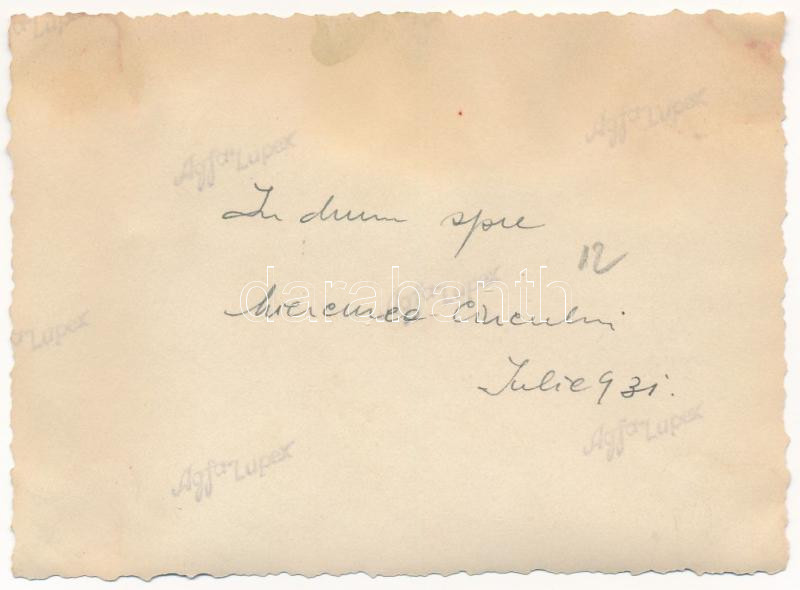 Agfa-Lupex
Agfa-Lupex
In drum spre
12
Miercurea Ciucului
darabanth
Agfa-Lupex
Iulie 931.
Agfa-Lupex
Agfa-Lupex